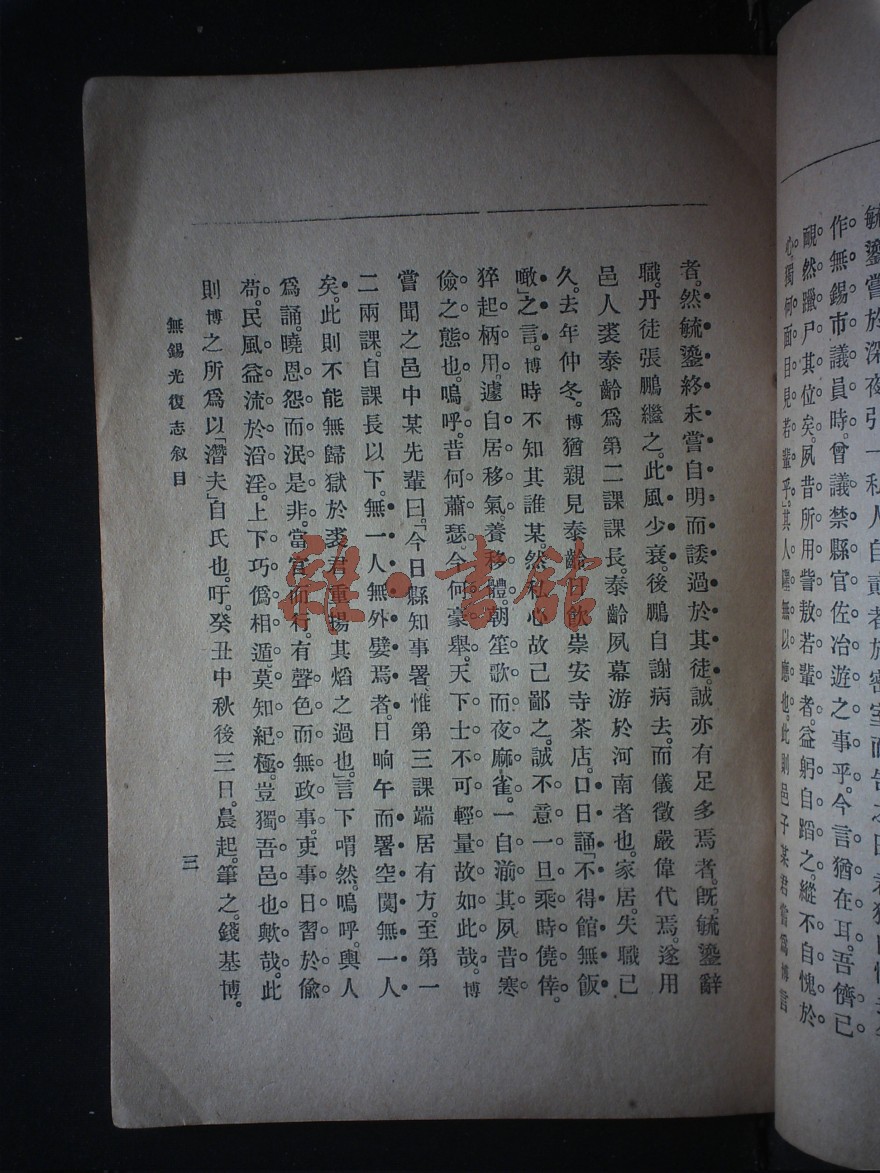 毓鎏嘗於深夜引一私人自責者於密室而告之曰君猶
作無錫市議員時。曾議禁縣官佐冶遊之事乎。今言猶在耳。吾儕已
靦然躐尸其位矣。夙昔所用訾敖若輩者。益躬自蹈之。縱不自愧於
心。獨何面目見若輩乎。」其人噤無以應也。此則邑子某君嘗爲博言
者。然毓鎏終未嘗自明而諉過於其徒。誠亦有足多焉者。既。毓鎏辭
職。丹徒張鵬繼之。此風少衰。後鵬自謝病去。而儀徵嚴偉代焉。遂用
邑人裘泰齡爲第二課課長。泰齡夙幕游於河南者也。家居。失職已
久。去年仲冬。博猶親見泰齡日飲崇安寺茶店。口日誦「不得館無飯
噉」之言。博時不知其誰某。然私心故已鄙之。誠不意一旦乘時僥倖。
猝起柄用。「遽自居移氣養移體。朝笙歌而夜麻雀。一自湔其夙昔寒
儉之態也。嗚呼。昔何蕭瑟。今何豪舉。天下士不可輕量故如此哉。博
嘗聞之邑中某先輩曰。「今日縣知事署。惟第三課端居有方。至第一
二兩課。自課長以下。無一人無外嬖焉者。日晌午而署空闃無一人
矣。此則不能無歸獄於裘君重揚其焰之過也。」言下喟然。嗚呼。輿人
爲誦。曉恩怨而泯是非。當官而行。有聲色而無政事。吏事日習於偸
苟。民風益流於滔淫。上下巧僞相遁。莫知紀極。豈獨吾邑也歟哉。此
則博之所爲以「潛夫」自氏也。吁。癸丑中秋後三日。晨起。筆之。錢基博。
無錫光復志叙目
三
雜·書館